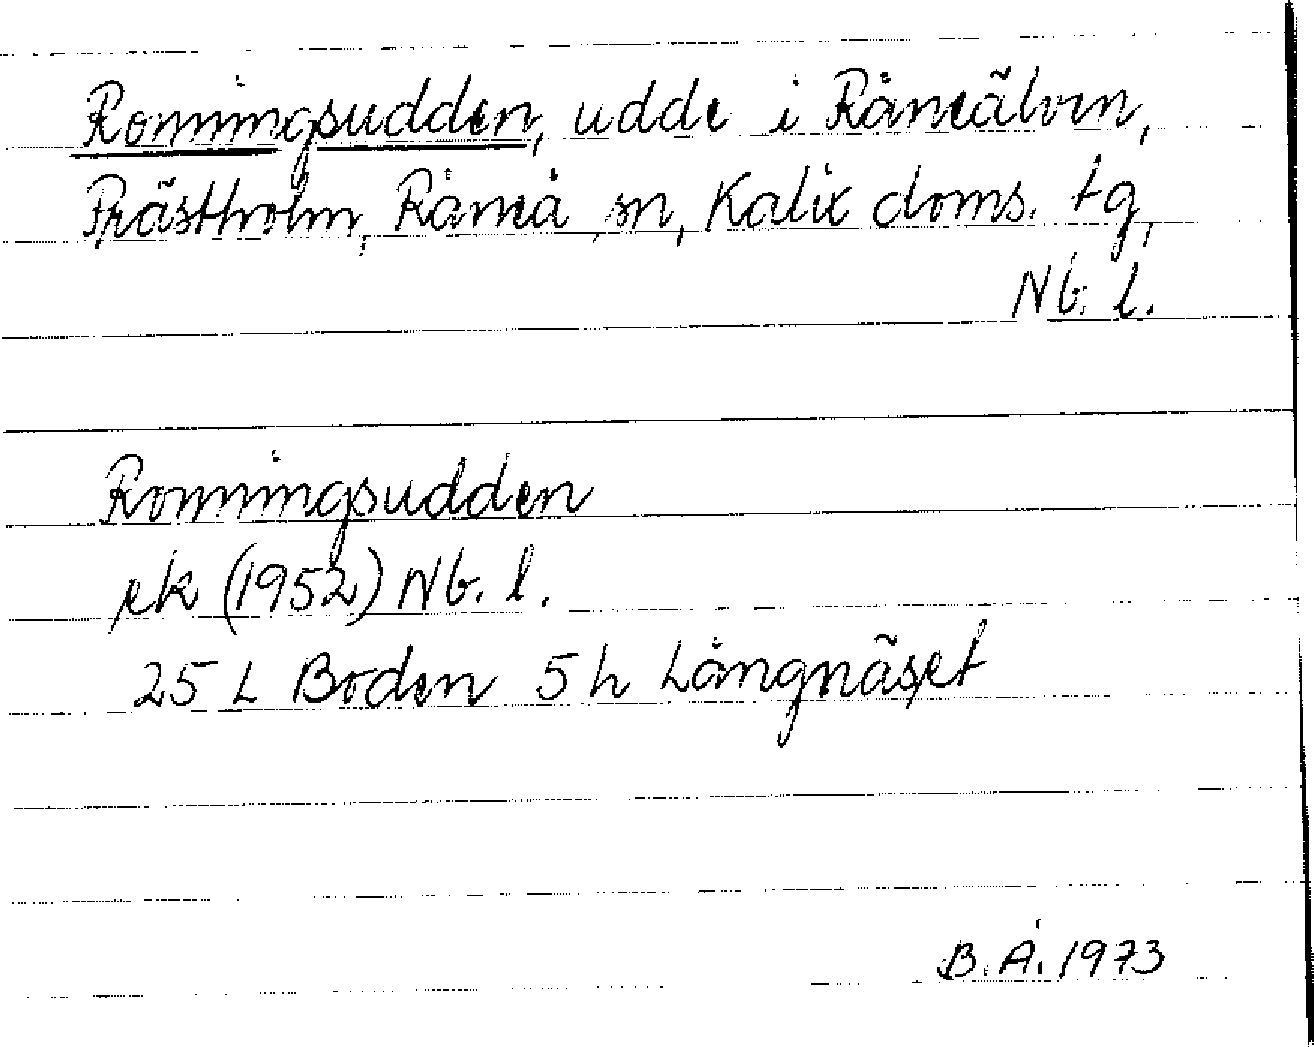 Ronningsudden, udde i Råneälven,
Prästholm, Råneå sn, Kalix doms. tg,
Nb. l.
Ronningsudden
ek (1952) Nb. l.
25 L Boden 5 h Långnäset
B.Å. 1973